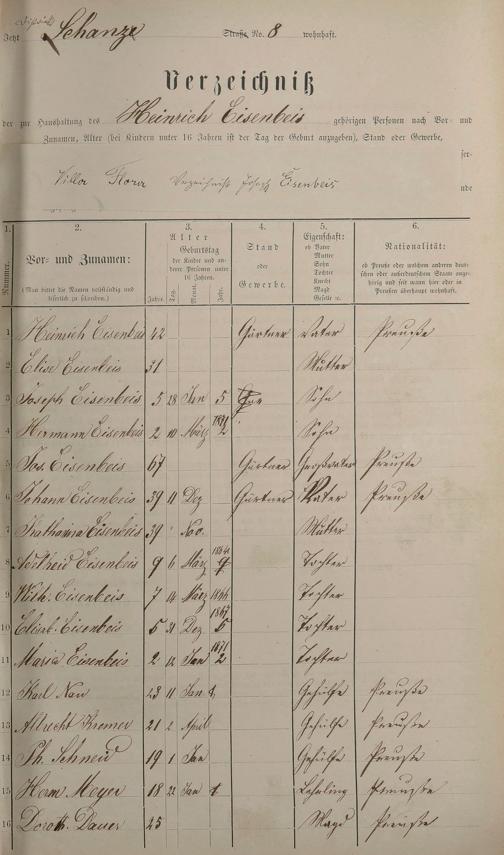 Jetzt Schanze Straße No. 8 wohnhaft.
Verzeichniß
der zur Haushaltung des Heinrich Eisenbeis gehörigen Personen nach Vor- und
Zunamen, Alter (bei Kindern unter 16 Jahren ist der Tag der Geburt anzugeben), Stand oder Gewerbe,
fer-
Villa Flora Verzeichniß Joseph Eisenbeis nde
1. 2. 3. 4. 5. 6.
Nummer. Vor- und Zunamen: (Man bittet die Namen vollständig und leserlich zu schreiben.)
Alter Geburtstag der Kinder und anderer Personen unter 16 Jahren. Jahre. Tag. Monat. Jahr.
Stand oder Gewerbe.
Eigenschaft: ob Vater Mutter Sohn Tochter Knecht Magd Geselle ꝛc.
Nationalität: ob Preuße oder welchem anderen deutschen oder außerdeutschen Staat angehörig und seit wann hier oder in Preußen überhaupt wohnhaft.
1 Heinrich Eisenbeis 42 Gärtner Vater Preuße
2 Elise Eisenbeis 31 Mutter
3 Joseph Eisenbeis 5 28 Jan 5 Sohn
4 Hermann Eisenbeis 2 10 März 1871 2 Sohn
5 Jos Eisenbeis 67 Gärtner Großvater Preuße
6 Johann Eisenbeis 39 11 Dez Gärtner Vater Preuße
7 Katharina Eisenbeis 39 Nov. Mutter
8 Adelheid Eisenbeis 9 6 März 1864 9 Tochter
9 Wilh. Eisenbeis 7 14 März 1866 Tochter
10 Elisab. Eisenbeis 5 31 Dez 1867 5 Tochter
11 Maria Eisenbeis 2 12 Jan 1871 2 Tochter
12 Karl Nau 23 11 Jan Gehülfe Preuße
13 Albrecht Kremer 21 2 April Gehülfe Preuße
14 Ph. Schneid 19 1 Jan Gehülfe Preuße
15 Herm. Meyer 18 22 Jan Lehrling Preuße
16 Doroth. Dauer 25 Magd Preuße